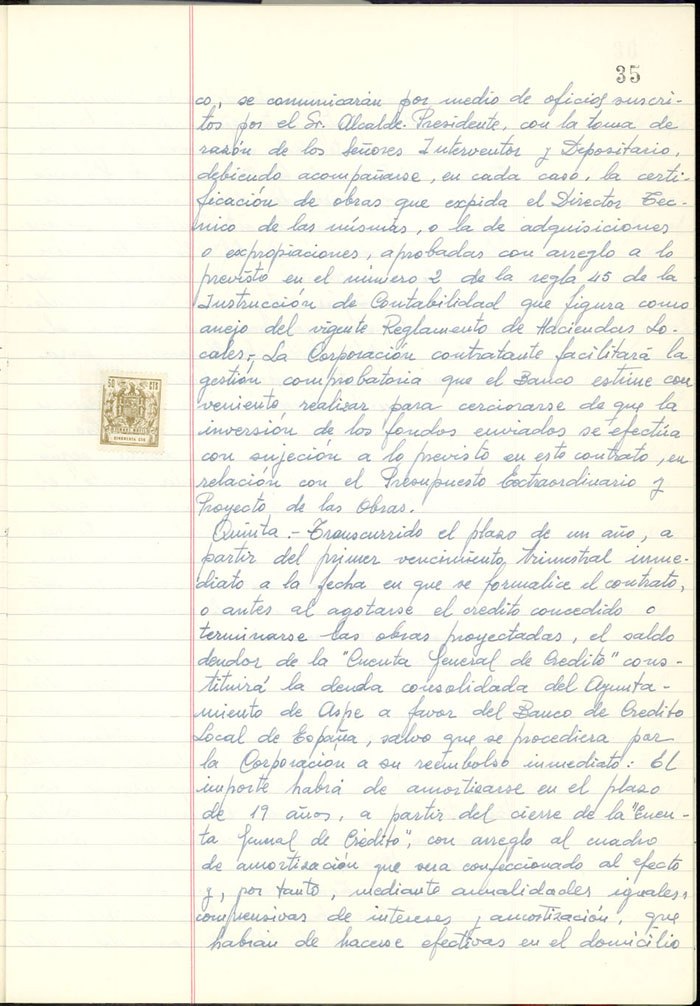 35
co, se comunicarán por medio de oficios suscri-
tos por el Sr. Alcalde-Presidente, con la toma de
razón de los Señores Interventor y Depositario,
debiendo acompañarse, en cada caso, la certi-
ficación de obras que expida el Director Téc-
nico de las mismas, o la de adquisiciones
o expropiaciones, aprobadas con arreglo a lo
previsto en el número 2 de la regla 45 de la
Instrucción de Contabilidad que figura como
anejo del vigente Reglamento de Haciendas Lo-
cales.- La Corporación contratante facilitará la
gestión comprobatoria que el Banco estime con
veniente realizar para cerciorarse de que la
inversión de los fondos enviados se efectúa
con sujeción a lo previsto en este contrato, en
relación con el Presupuesto Extraordinario y
Proyecto de las Obras.
Quinta.- Transcurrido el plazo de un año, a
partir del primer vencimiento trimestral inme-
diato a la fecha en que se formalice el contrato,
o antes al agotarse el credito concedido o
terminarse las obras proyectadas, el saldo
deudor de la "Cuenta General de Credito" cons-
tituirá la deuda consolidada del Ayunta-
miento de Aspe a favor del Banco de Credito
Local de España, salvo que se procediera por
la Corporación a su reembolso inmediato: El
importe habrá de amortizarse en el plazo
de 19 años, a partir del cierre de la "Cuen-
ta General de Crédito", con arreglo al cuadro
de amortización que sera confeccionado al efecto
y, por tanto, mediante anualidades iguales,
comprensivas de intereses y amortización, que
habrán de hacerse efectivas en el domicilio
50 CTS